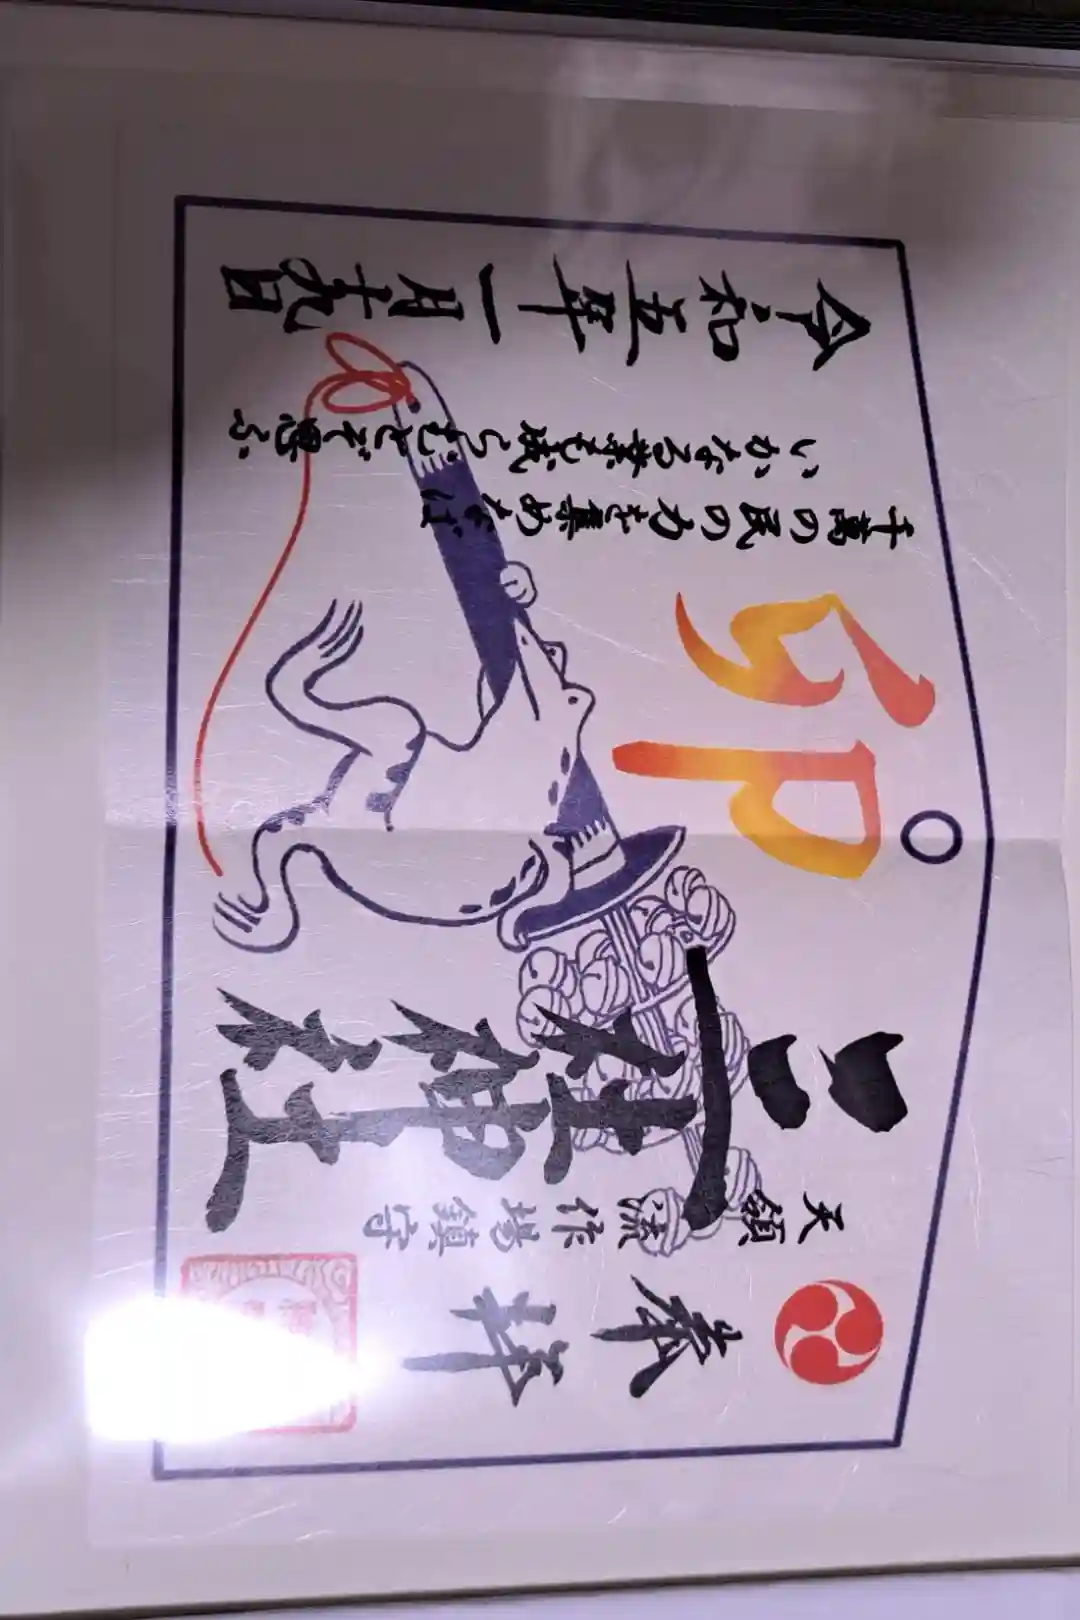 奉拝
天領流作場鎮守
三社神社
卯
千萬の民の力を集めなば
いかなる業も成らむとぞ思ふ
令和五年一月十九日